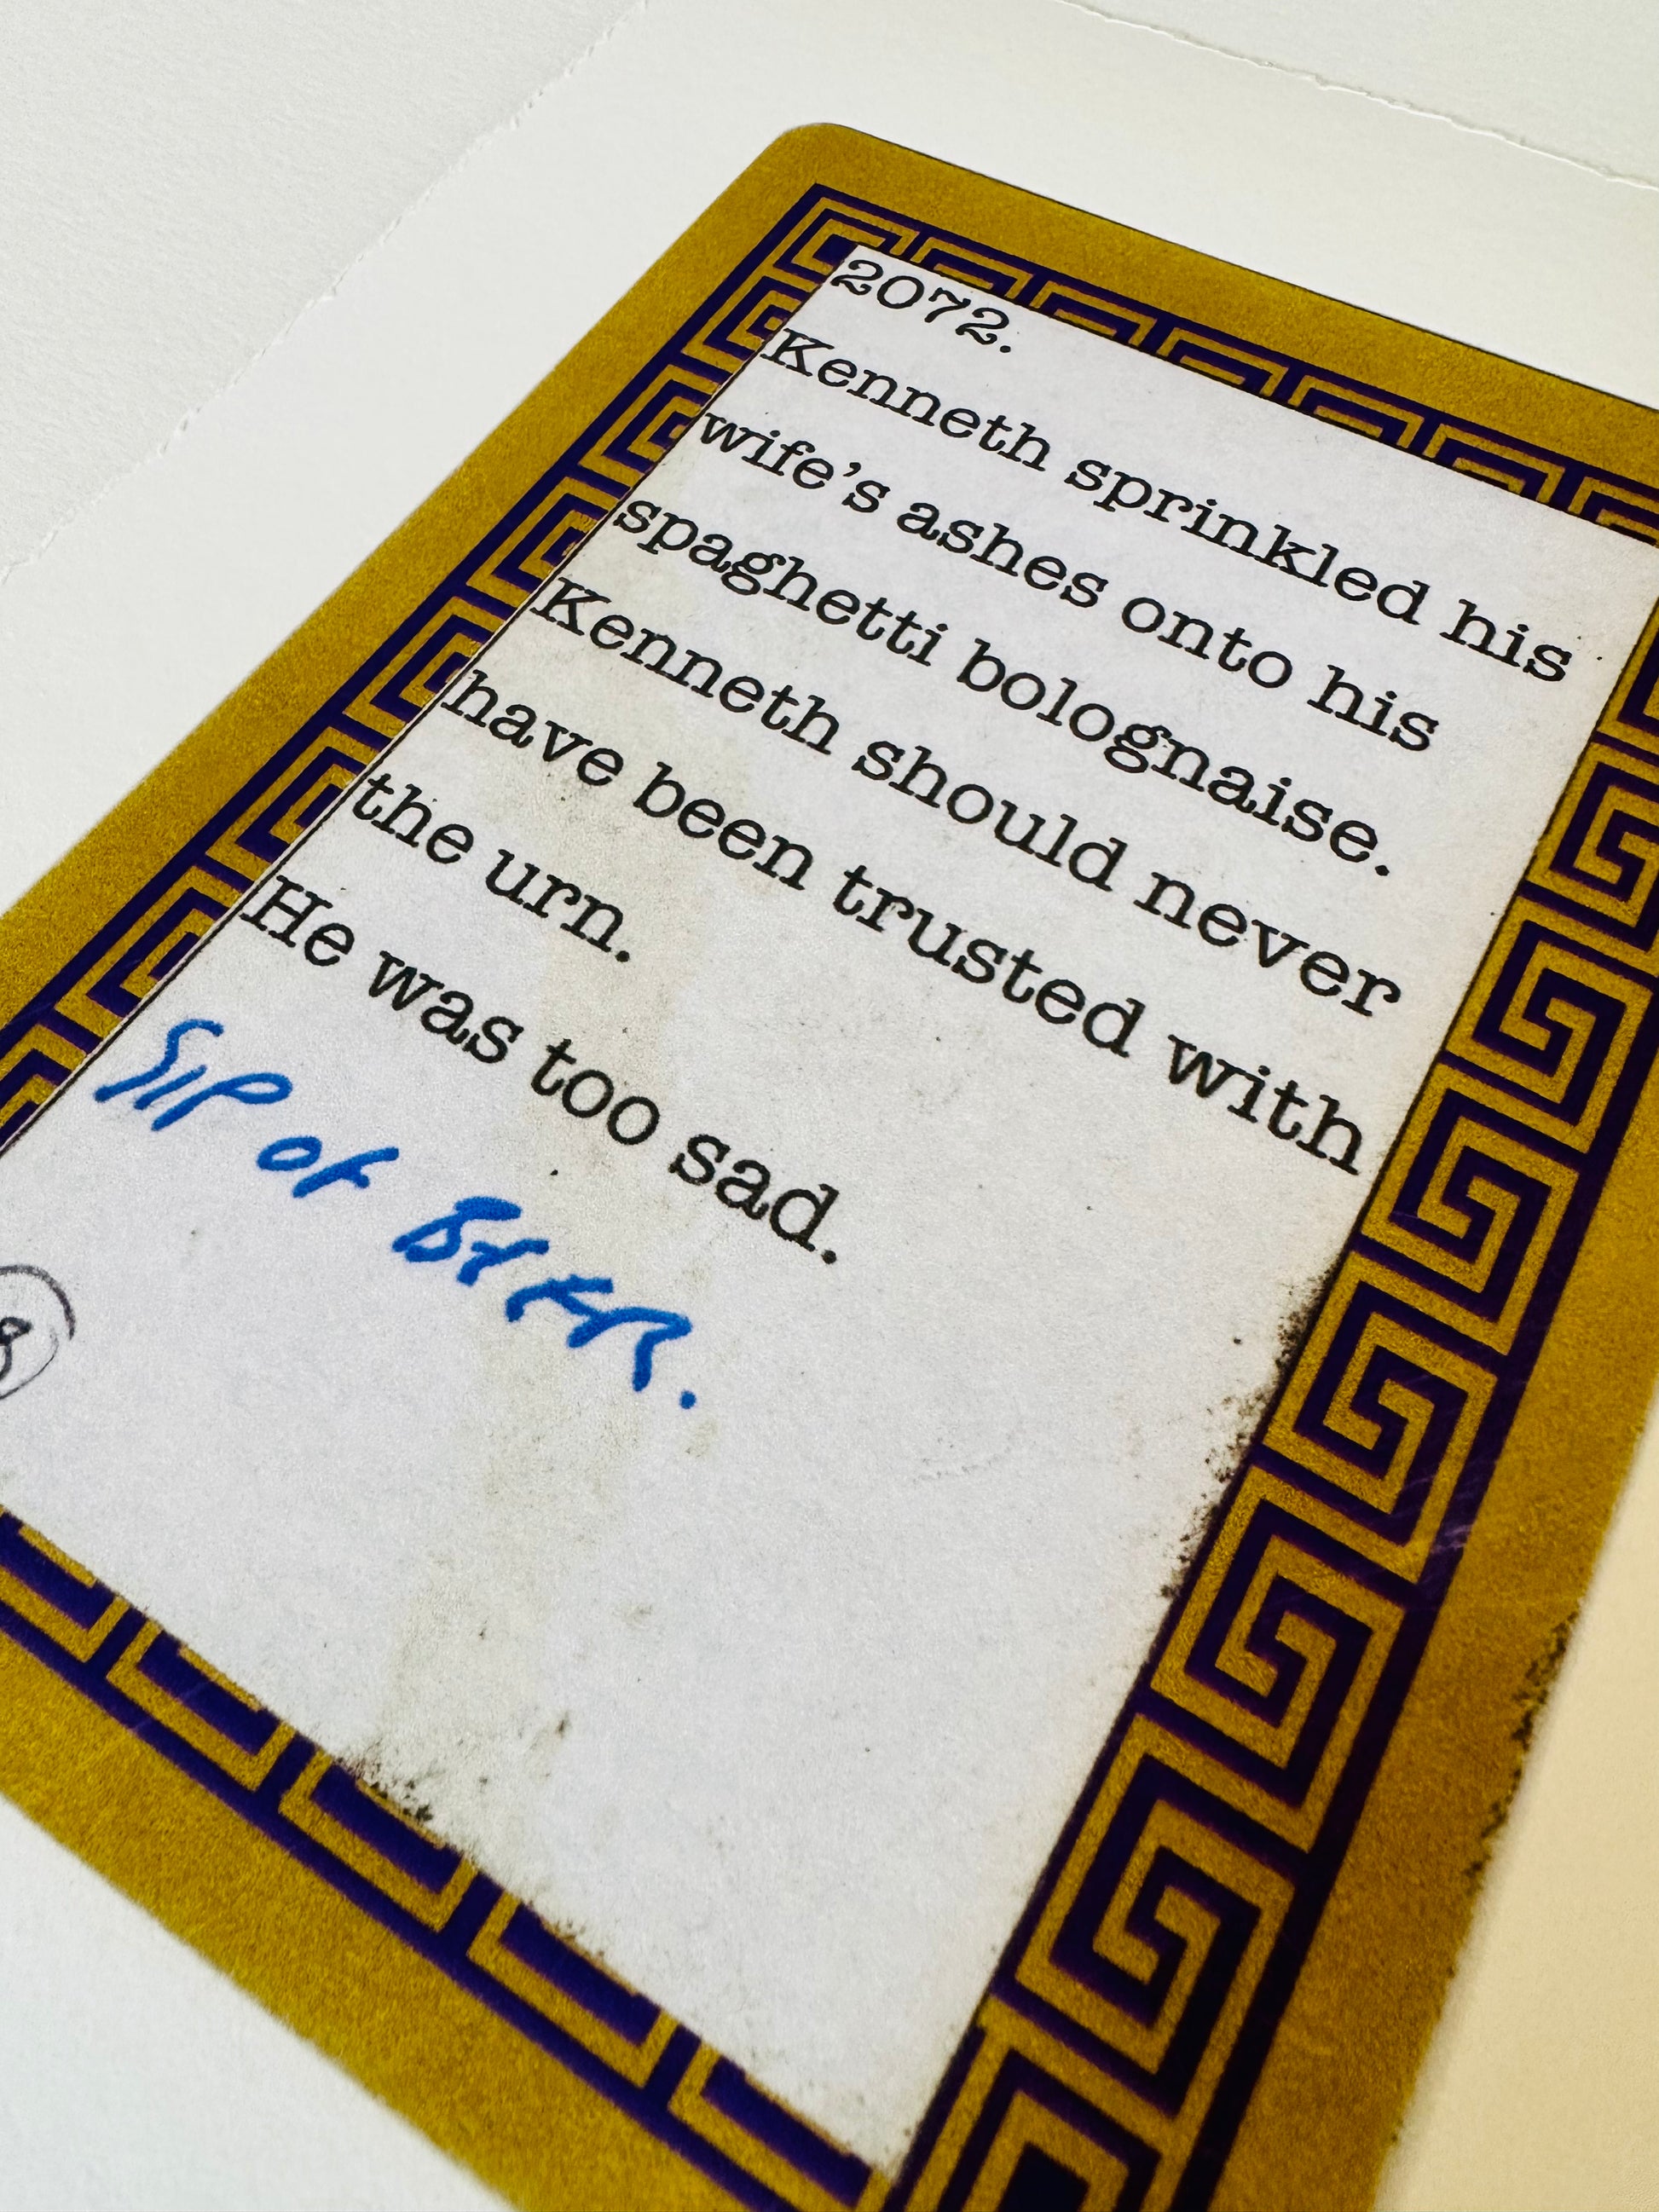 2072.
Kenneth sprinkled his
wife's ashes onto his
spaghetti bolognaise.
Kenneth should never
have been trusted with
the urn.
He was too sad.
SIP OF BEER.
8